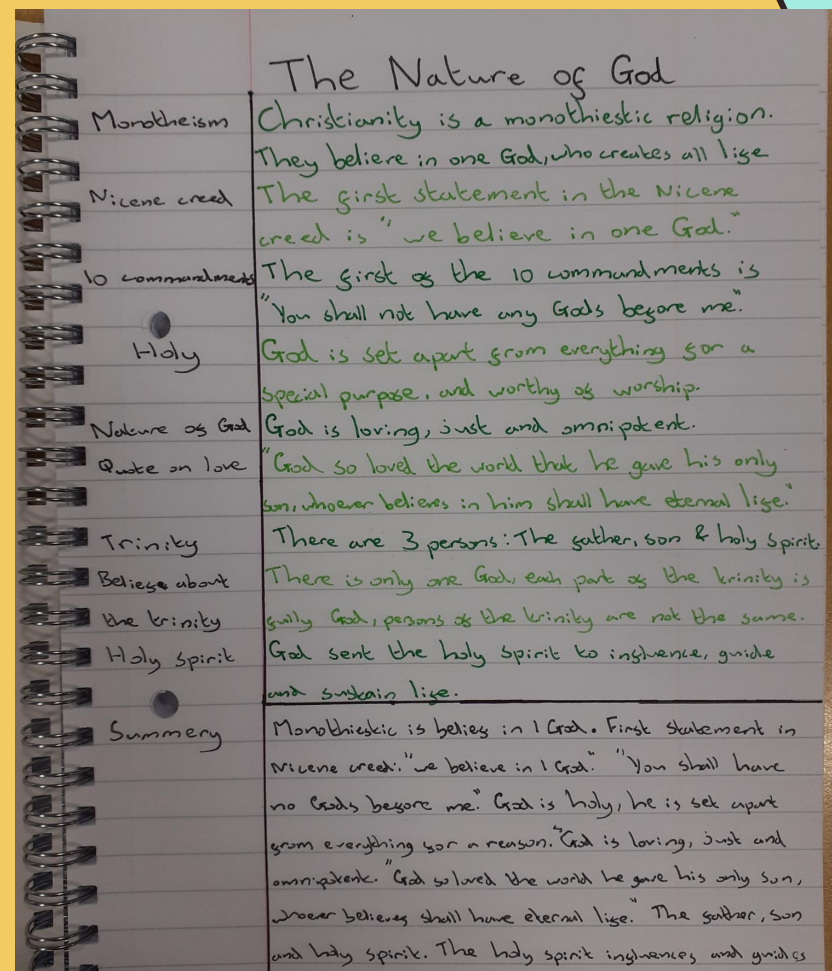 The Nature of God
Monotheism Christianity is a monothiestic religion.
They believe in one God, who creates all life
Nicene creed The first statement in the Nicene
creed is "we believe in one God."
10 commandments The first of the 10 commandments is
"You shall not have any Gods before me".
Holy God is set apart from everything for a
special purpose, and worthy of worship.
Nature of God God is loving, just and omnipotent.
Quote on love "God so loved the world that he gave his only
son, whoever believes in him shall have eternal life."
Trinity There are 3 persons: The father, son & holy spirit.
Beliefs about There is only one God, each part of the trinity is
the trinity fully God, persons of the trinity are not the same.
Holy spirit God sent the holy spirit to influence, guide
and sustain life.
Summery Monothiestic is belief in 1 God. First statement in
Nicene creed: "we believe in 1 God." "You shall have
no Gods before me." God is holy, he is set apart
from everything for a reason. "God is loving, just and
omnipotent. "God so loved the world he gave his only son,
whoever believes shall have eternal life." The father, son
and holy spirit. The holy spirit influences and guides